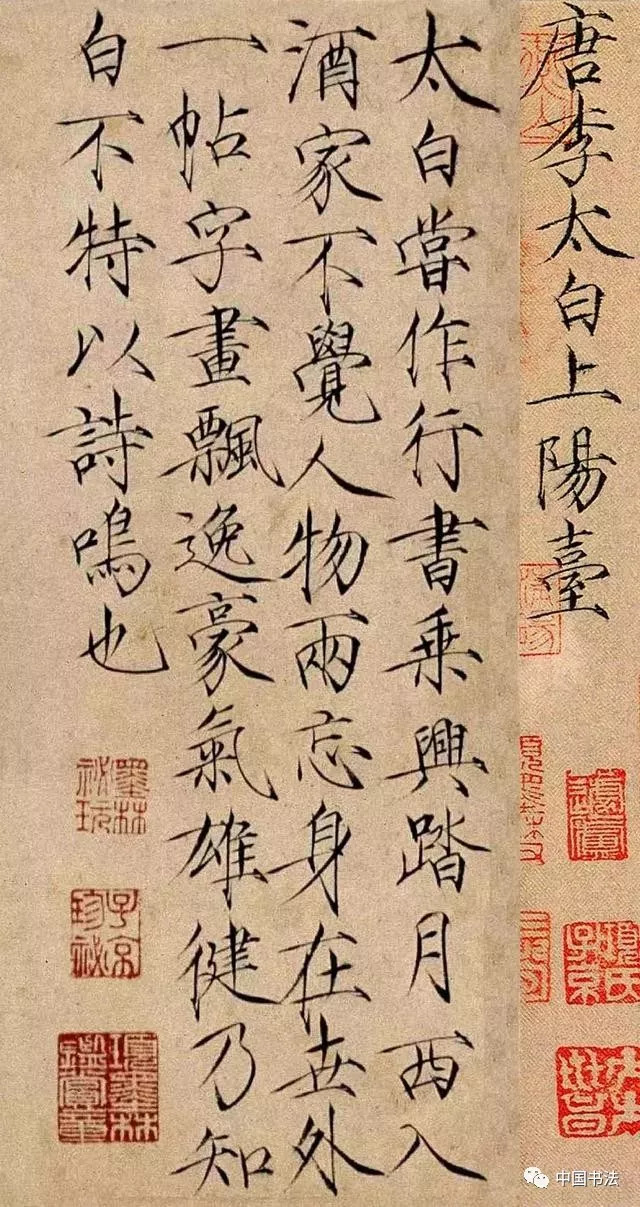 唐李太白上陽臺
太白嘗作行書乗興踏月西入
酒家不覺人物兩忘身在世外
一帖字畫飄逸豪氣雄健乃知
白不特以詩鳴也
墨林祕玩
子京珍祕
項墨林鑑賞章
中国书法